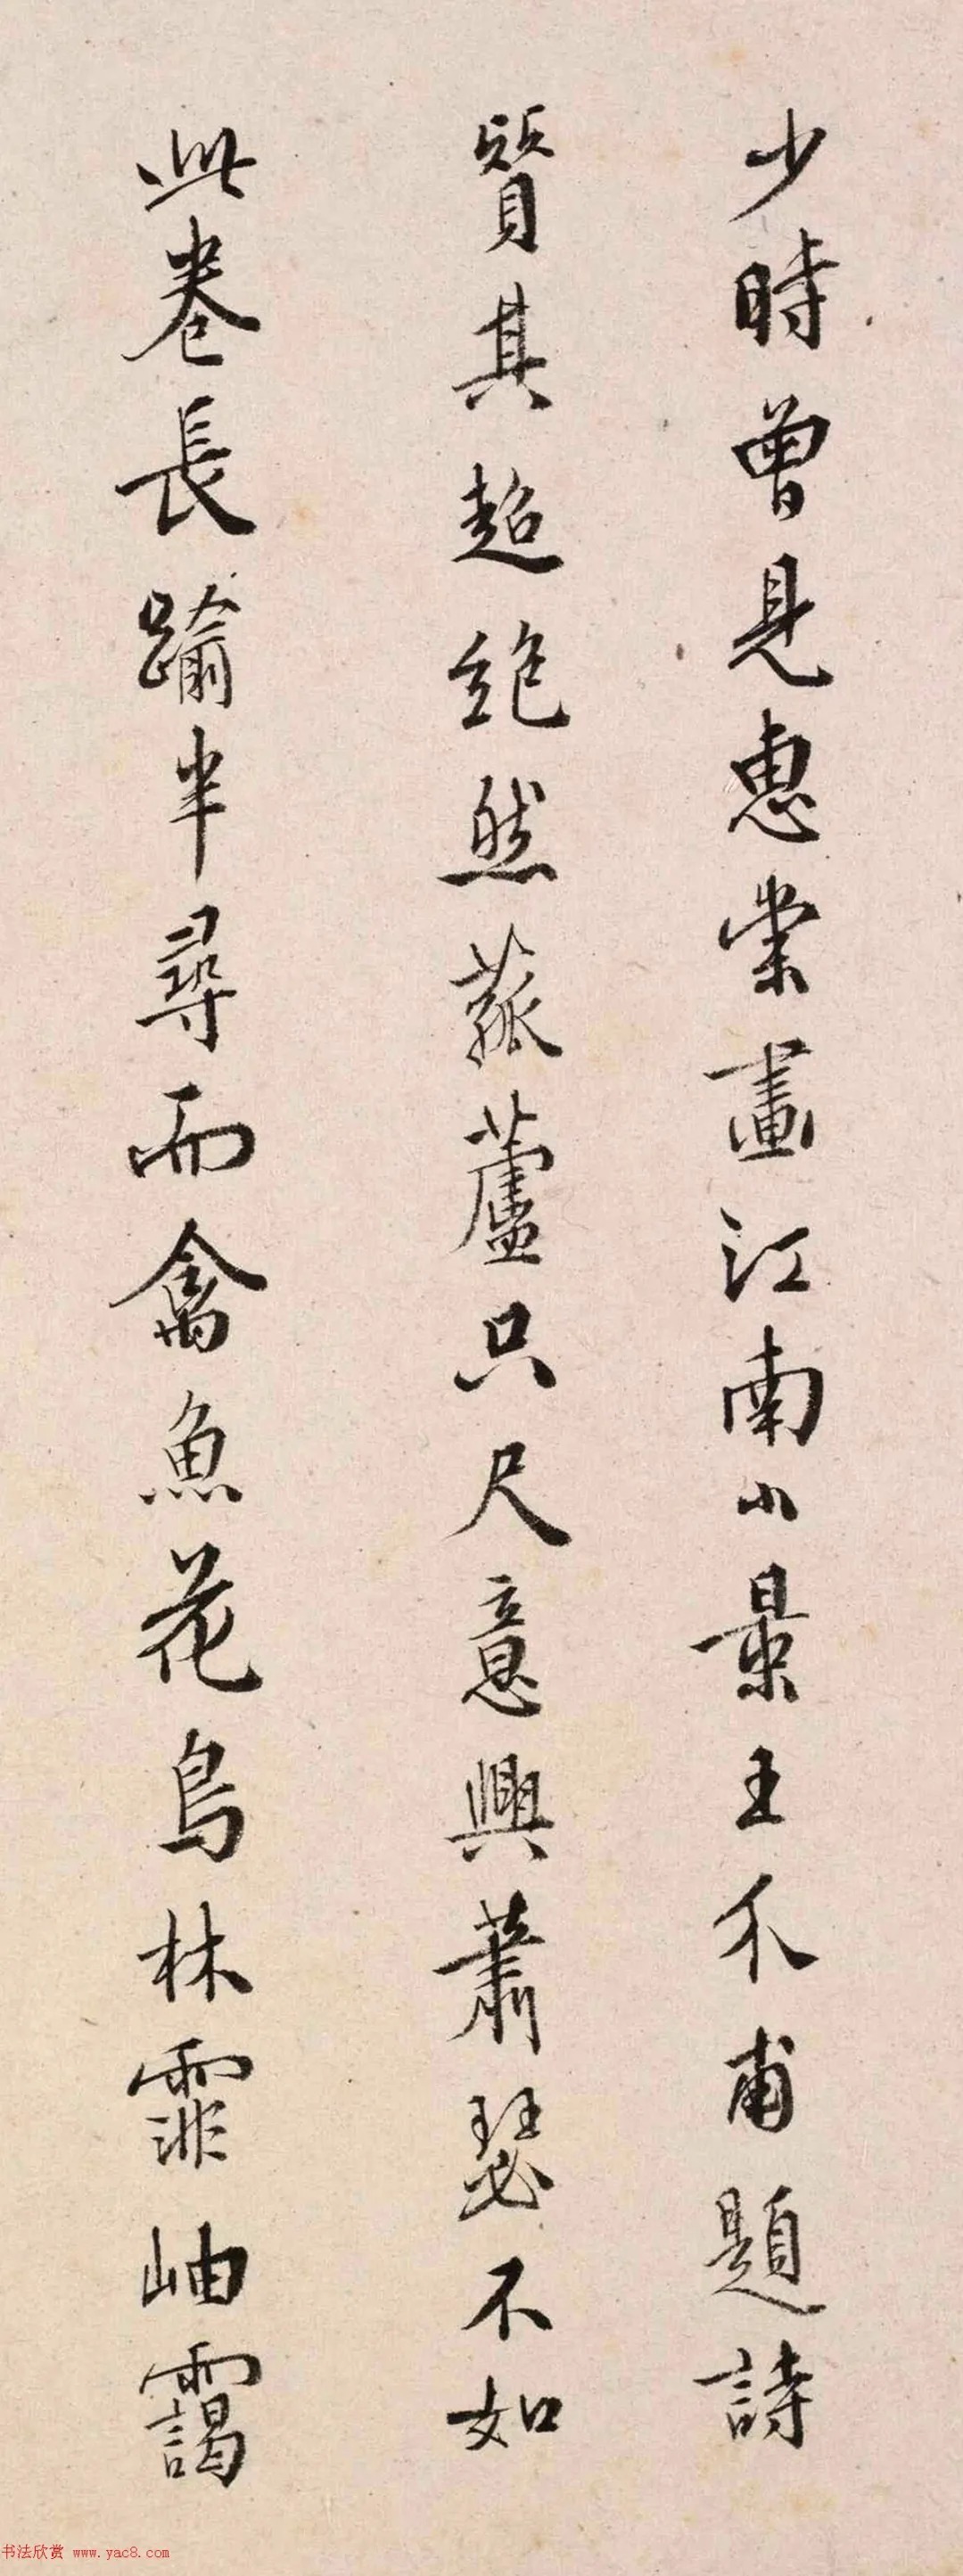 少時曾見惠崇畫江南小景王介甫題詩
賢其超絕然菰蘆只尺意興蕭瑟不如
此卷長踰半尋而禽魚花鳥林霏岫靄
书法欣赏 www.yac8.com